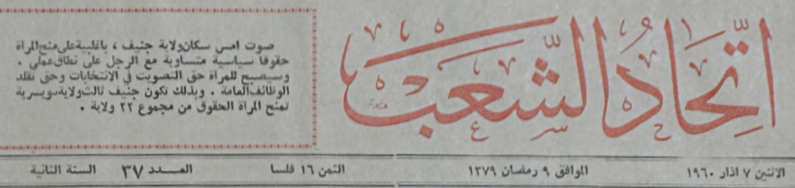 اتحاد الشعب
صوت امس سكان ولاية جنيف ، باغلبية على منح المرأة
حقوقا سياسية متساوية مع الرجل على نطاق عملي .
وسيصبح للمرأة حق التصويت في الانتخابات وحق تقلد
الوظائف العامة . وبذلك تكون جنيف ثالث ولاية سويسرية
تمنح المرأة الحقوق من مجموع ٢٢ ولاية .
الاثنين ٧ آذار ١٩٦٠ الموافق ٩ رمضان ١٣٧٩ الثمن ١٦ فلسا العـــدد ٣٧ السنة الثانية